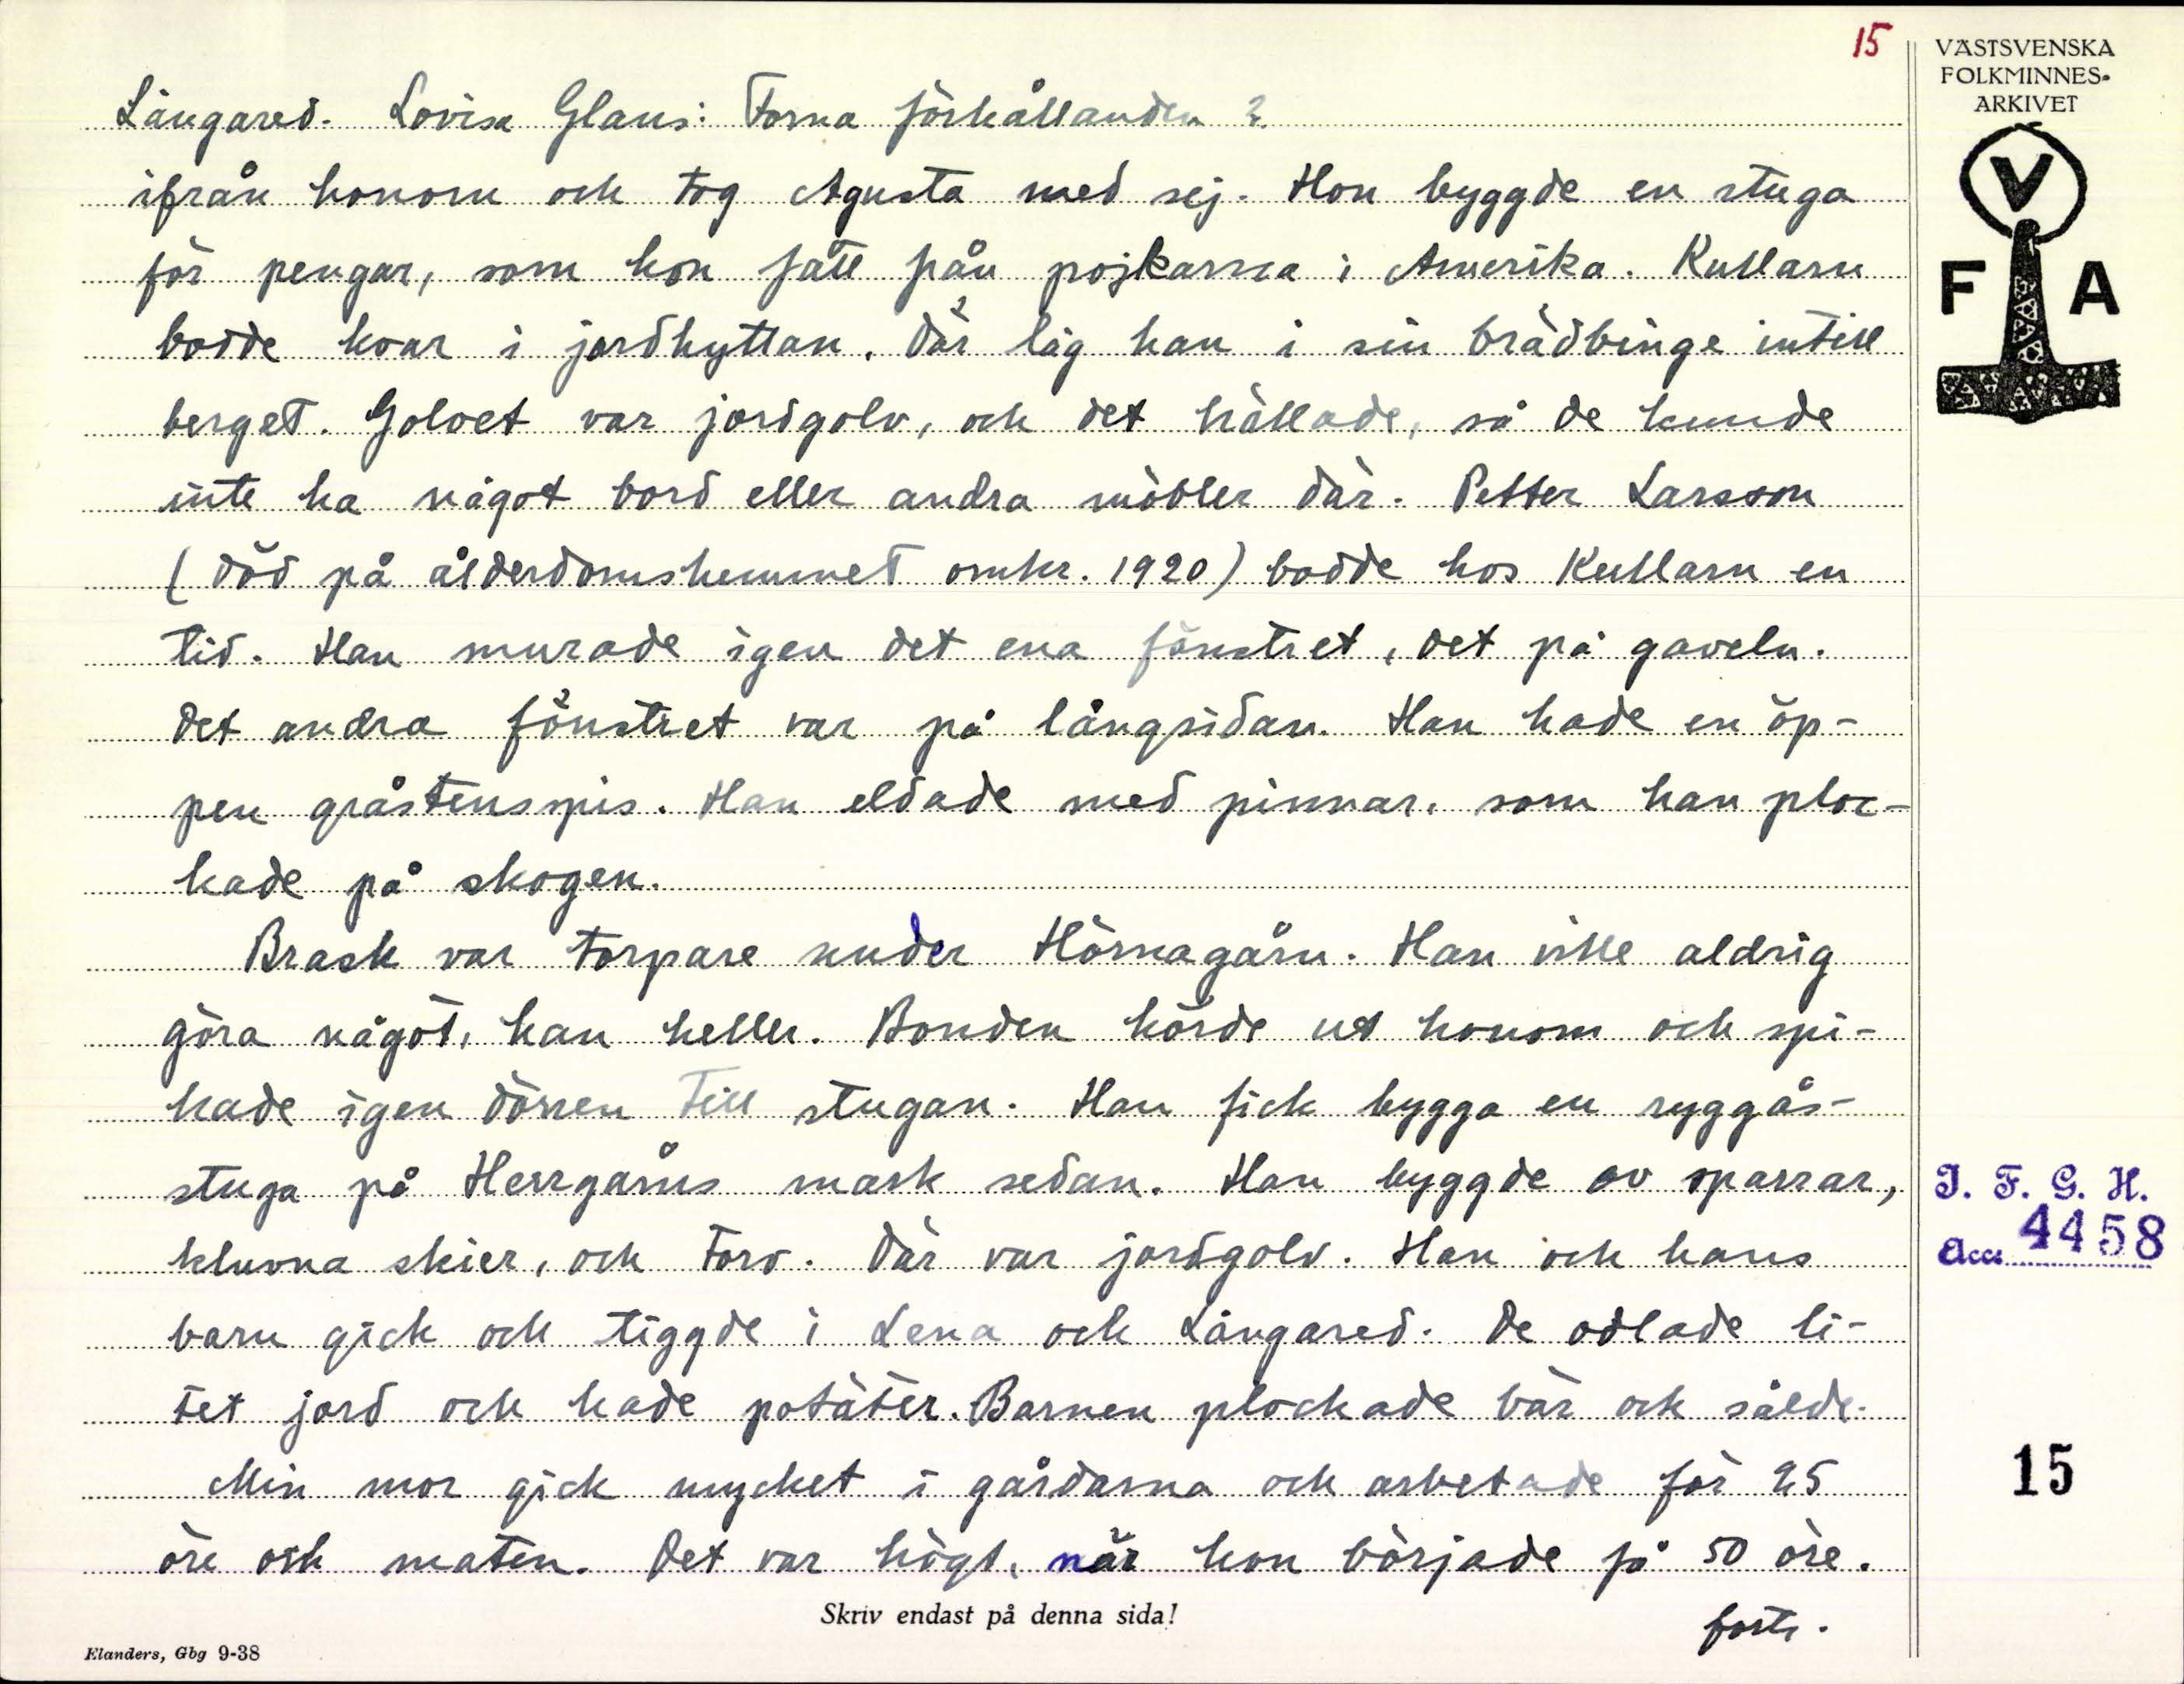 15
VÄSTSVENSKA
FOLKMINNES-
ARKIVET
V
F A
Långared. Lovisa Glans: Forna förhållanden 2.
ifrån honom och tog Agusta med sej. Hon byggde en stuga
för pengar, som hon fått från pojkarna i Amerika. Kullarn
bodde kvar i jordhyttan. Där låg han i sin brädbinge intill
berget. Golvet var jordgolv, och det hällade, så de kunde
inte ha något bord eller andra möbler där. Petter Larsson
(död på ålderdomshemmet omkr. 1920) bodde hos Kullarn en
tid. Han murade igen det ena fönstret, det på gaveln.
Det andra fönstret var på långsidan. Han hade en öp-
pen gråstensspis. Han eldade med pinnar, som han ploc-
kade på skogen.
Brask var torpare under Hörnagårn. Han ville aldrig
göra något, han heller. Bonden körde ut honom och spi-
kade igen dörren till stugan. Han fick bygga en ryggås-
stuga på Herrgårns mark sedan. Han byggde av sparrar,
kluvna skier, och torv. Där var jordgolv. Han och hans
barn gick och tiggde i Lena och Långared. De odlade li-
tet jord och hade potäter. Barnen plockade bär och sålde.
Min mor gick mycket i gårdarna och arbetade för 25
öre och maten. Det var högt, när hon började få 50 öre.
forts.
I. F. G. H.
Acc. 4458
15
Skriv endast på denna sida!
Elanders, Gbg 9-38